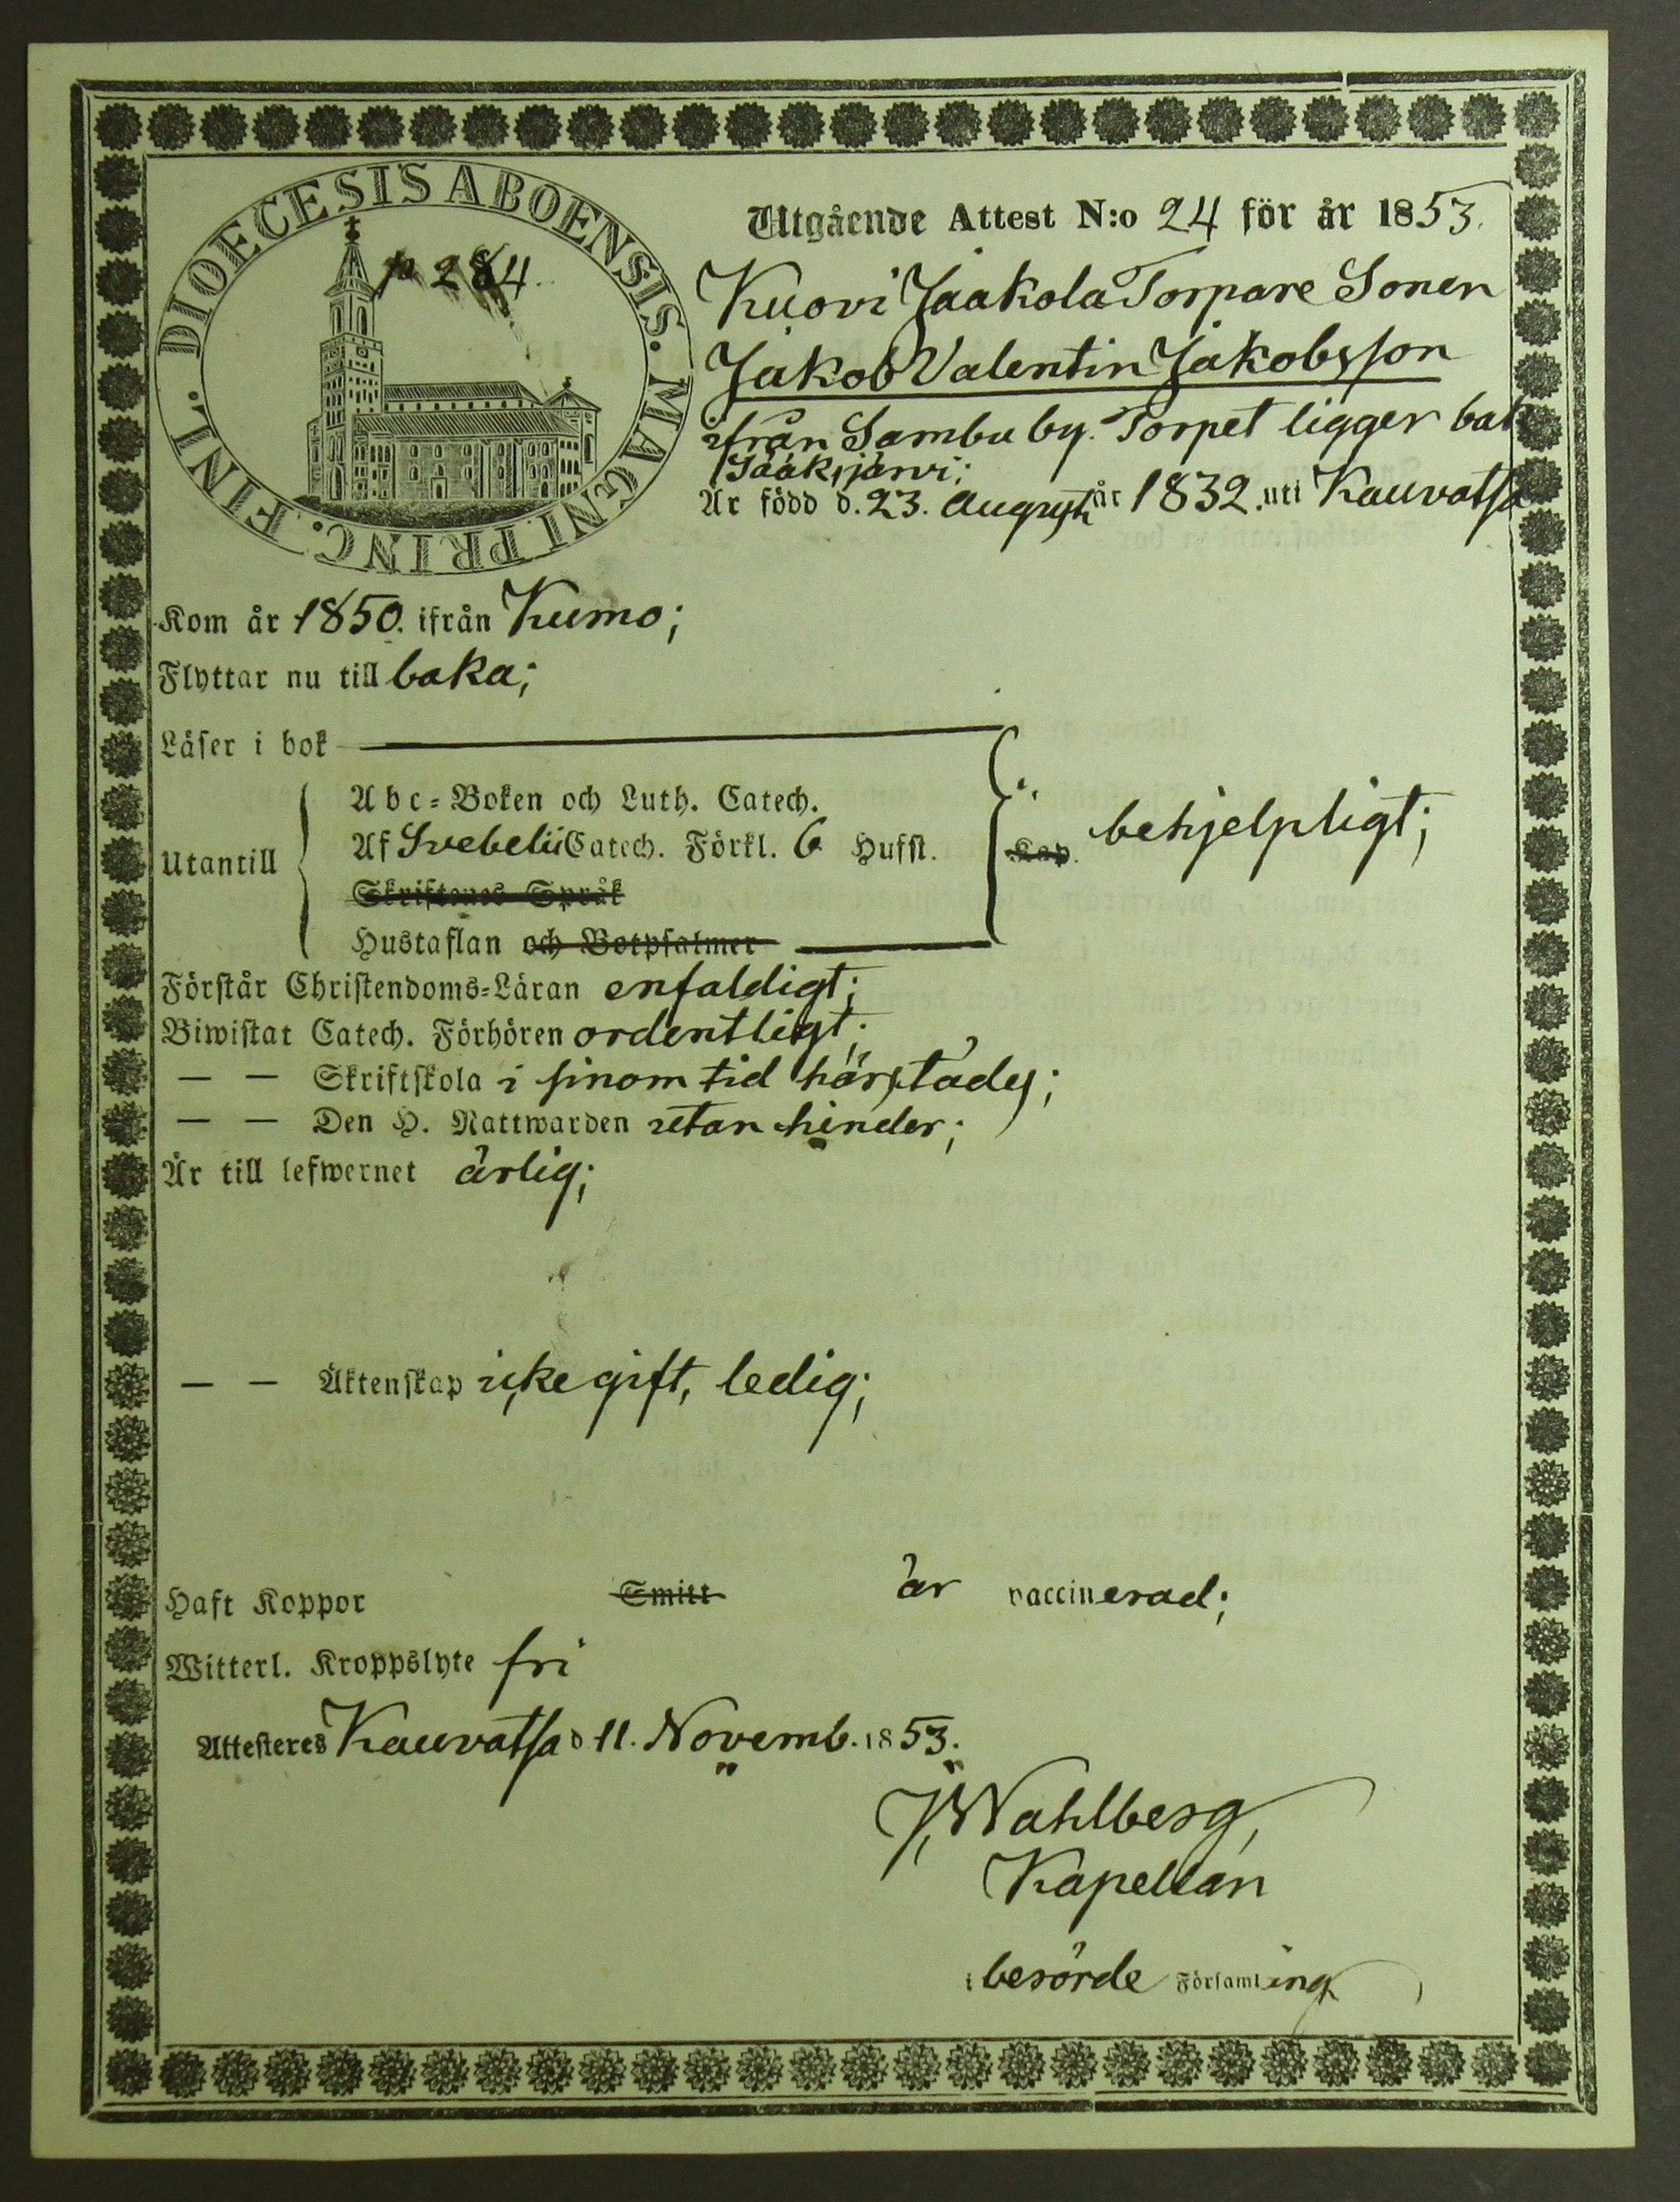 DIOECESIS ABOENSIS. MAGNI PRINC. FINL.
p 284.
Utgående Attest N:o 24 för år 1853.
Kuovi Jaakola Torpare Sonen
Jakob Valentin Jakobsson
ifrån Sambu by. Torpet ligger bak
Sääksjärvi;
Är född d. 23. Augusti år 1832. uti Kauvatsa
Kom år 1850. ifrån Kumo;
Flyttar nu till baka;
Läser i bok
Abc-Boken och Luth. Catech.
Utantill Af Svebelii Catech. Förkl. 6 Hufst. Kap. behjelpligt;
Skriftenes Språk
Hustaflan och Botpsalmer
Förstår Christendoms-Läran enfaldigt;
Biwistat Catech. Förhören ordentligt;
— — Skriftskola i sinom tid härstädes;
— — Den H. Nattwarden utan hinder;
Är till lefwernet ärlig;
— — Äktenskap icke gift, ledig;
Haft Koppor Smitt är vaccinerad;
Witterl. Kroppslyte fri
Attesteres Kauvatsa d 11. Novemb. 1853.
J. Wahlberg,
Kapellan
i berörde Församling